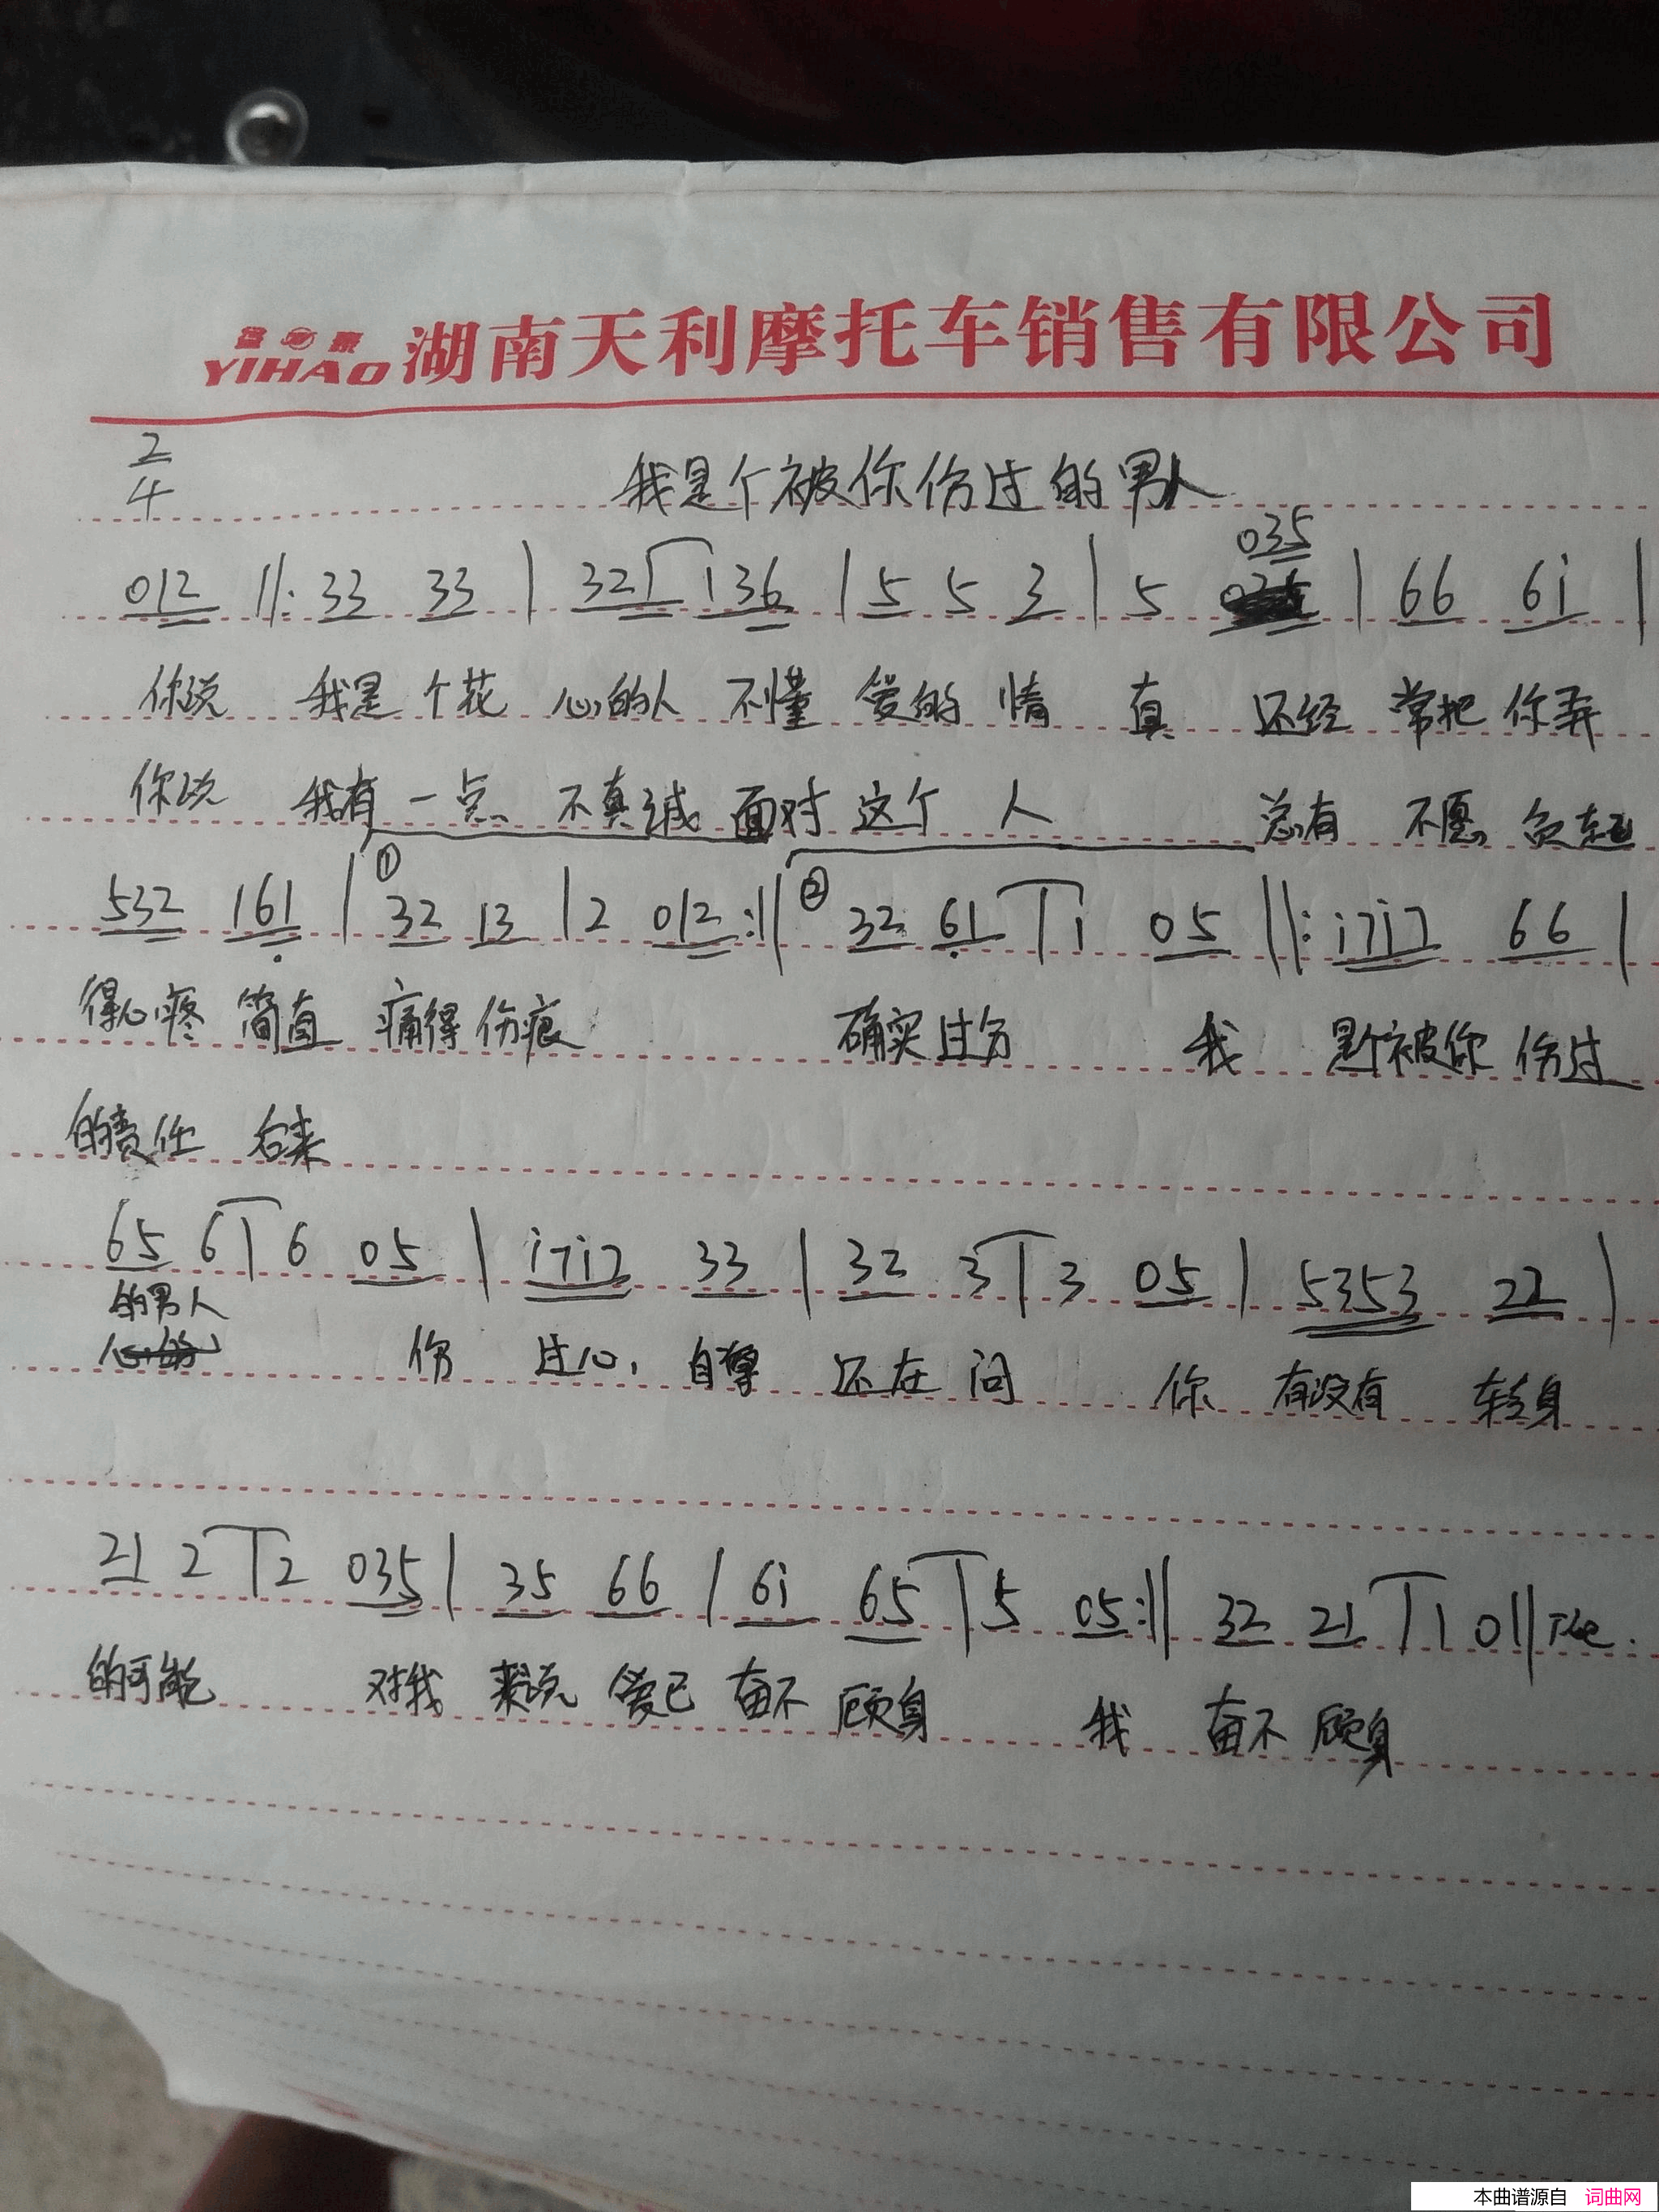 YIHAO 湖南天利摩托车销售有限公司
2/4
我是个被你伤过的男人
035
012 ||: 33 33 | 32 1 36 | 5 5 3 | 5 | 66 6i |
你说 我是 个花 心的人 不懂 爱的 情 真 还经 常把 你弄
你说 我有 一点 不真诚 面对 这个 人 总有 不愿 负起
532 161 | ① 32 13 | 2 012 :|| ② 32 61 | 1 05 ||: i7i7 66 |
得心疼 简直 痛得 伤痕 确实 过分 我 是个被你 伤过
的责任 后来
65 6 | 6 05 | i7i7 33 | 32 3 | 3 05 | 5353 22 |
的男人
伤 过心, 自尊 还在 问 你 有没有 转身
21 2 | 2 035 | 35 66 | 6i 65 | 5 05 :|| 32 21 | 1 0 ||
的可能 对我 来说 爱已 奋不 顾身 我 奋不 顾身
本曲谱源自 词曲网